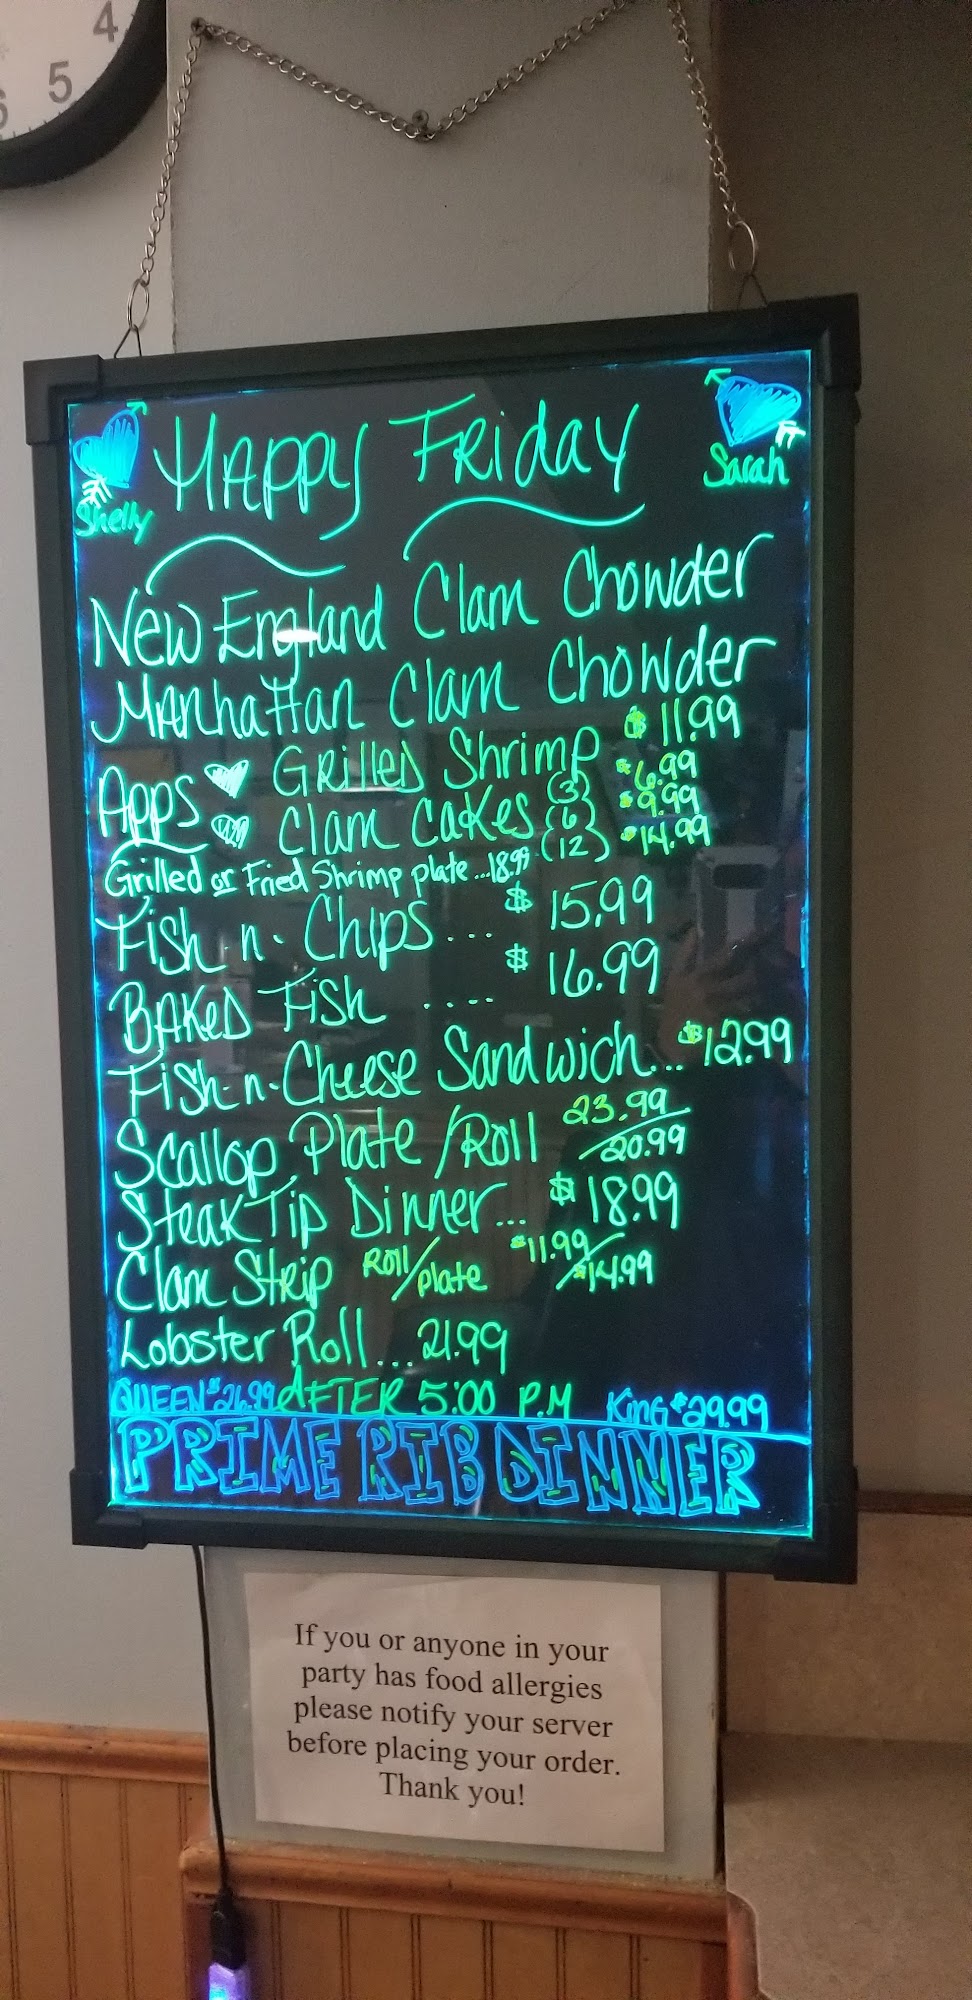 4
5
6
Happy Friday
Shelly
Sarah
New England Clam Chowder
Manhattan Clam Chowder
Apps Grilled Shrimp $11.99
Clam Cakes (3) $6.99
(6) $9.99
(12) $14.99
Grilled or Fried Shrimp plate...18.99
Fish-n-Chips... $15.99
Baked Fish .... $16.99
Fish-n-Cheese Sandwich... $12.99
Scallop Plate/Roll 23.99/20.99
Steak Tip Dinner... $18.99
Clam Strip Roll/plate $11.99/$14.99
Lobster Roll... 21.99
QUEEN $26.99 AFTER 5:00 P.M King $29.99
PRIME RIB DINNER
If you or anyone in your
party has food allergies
please notify your server
before placing your order.
Thank you!